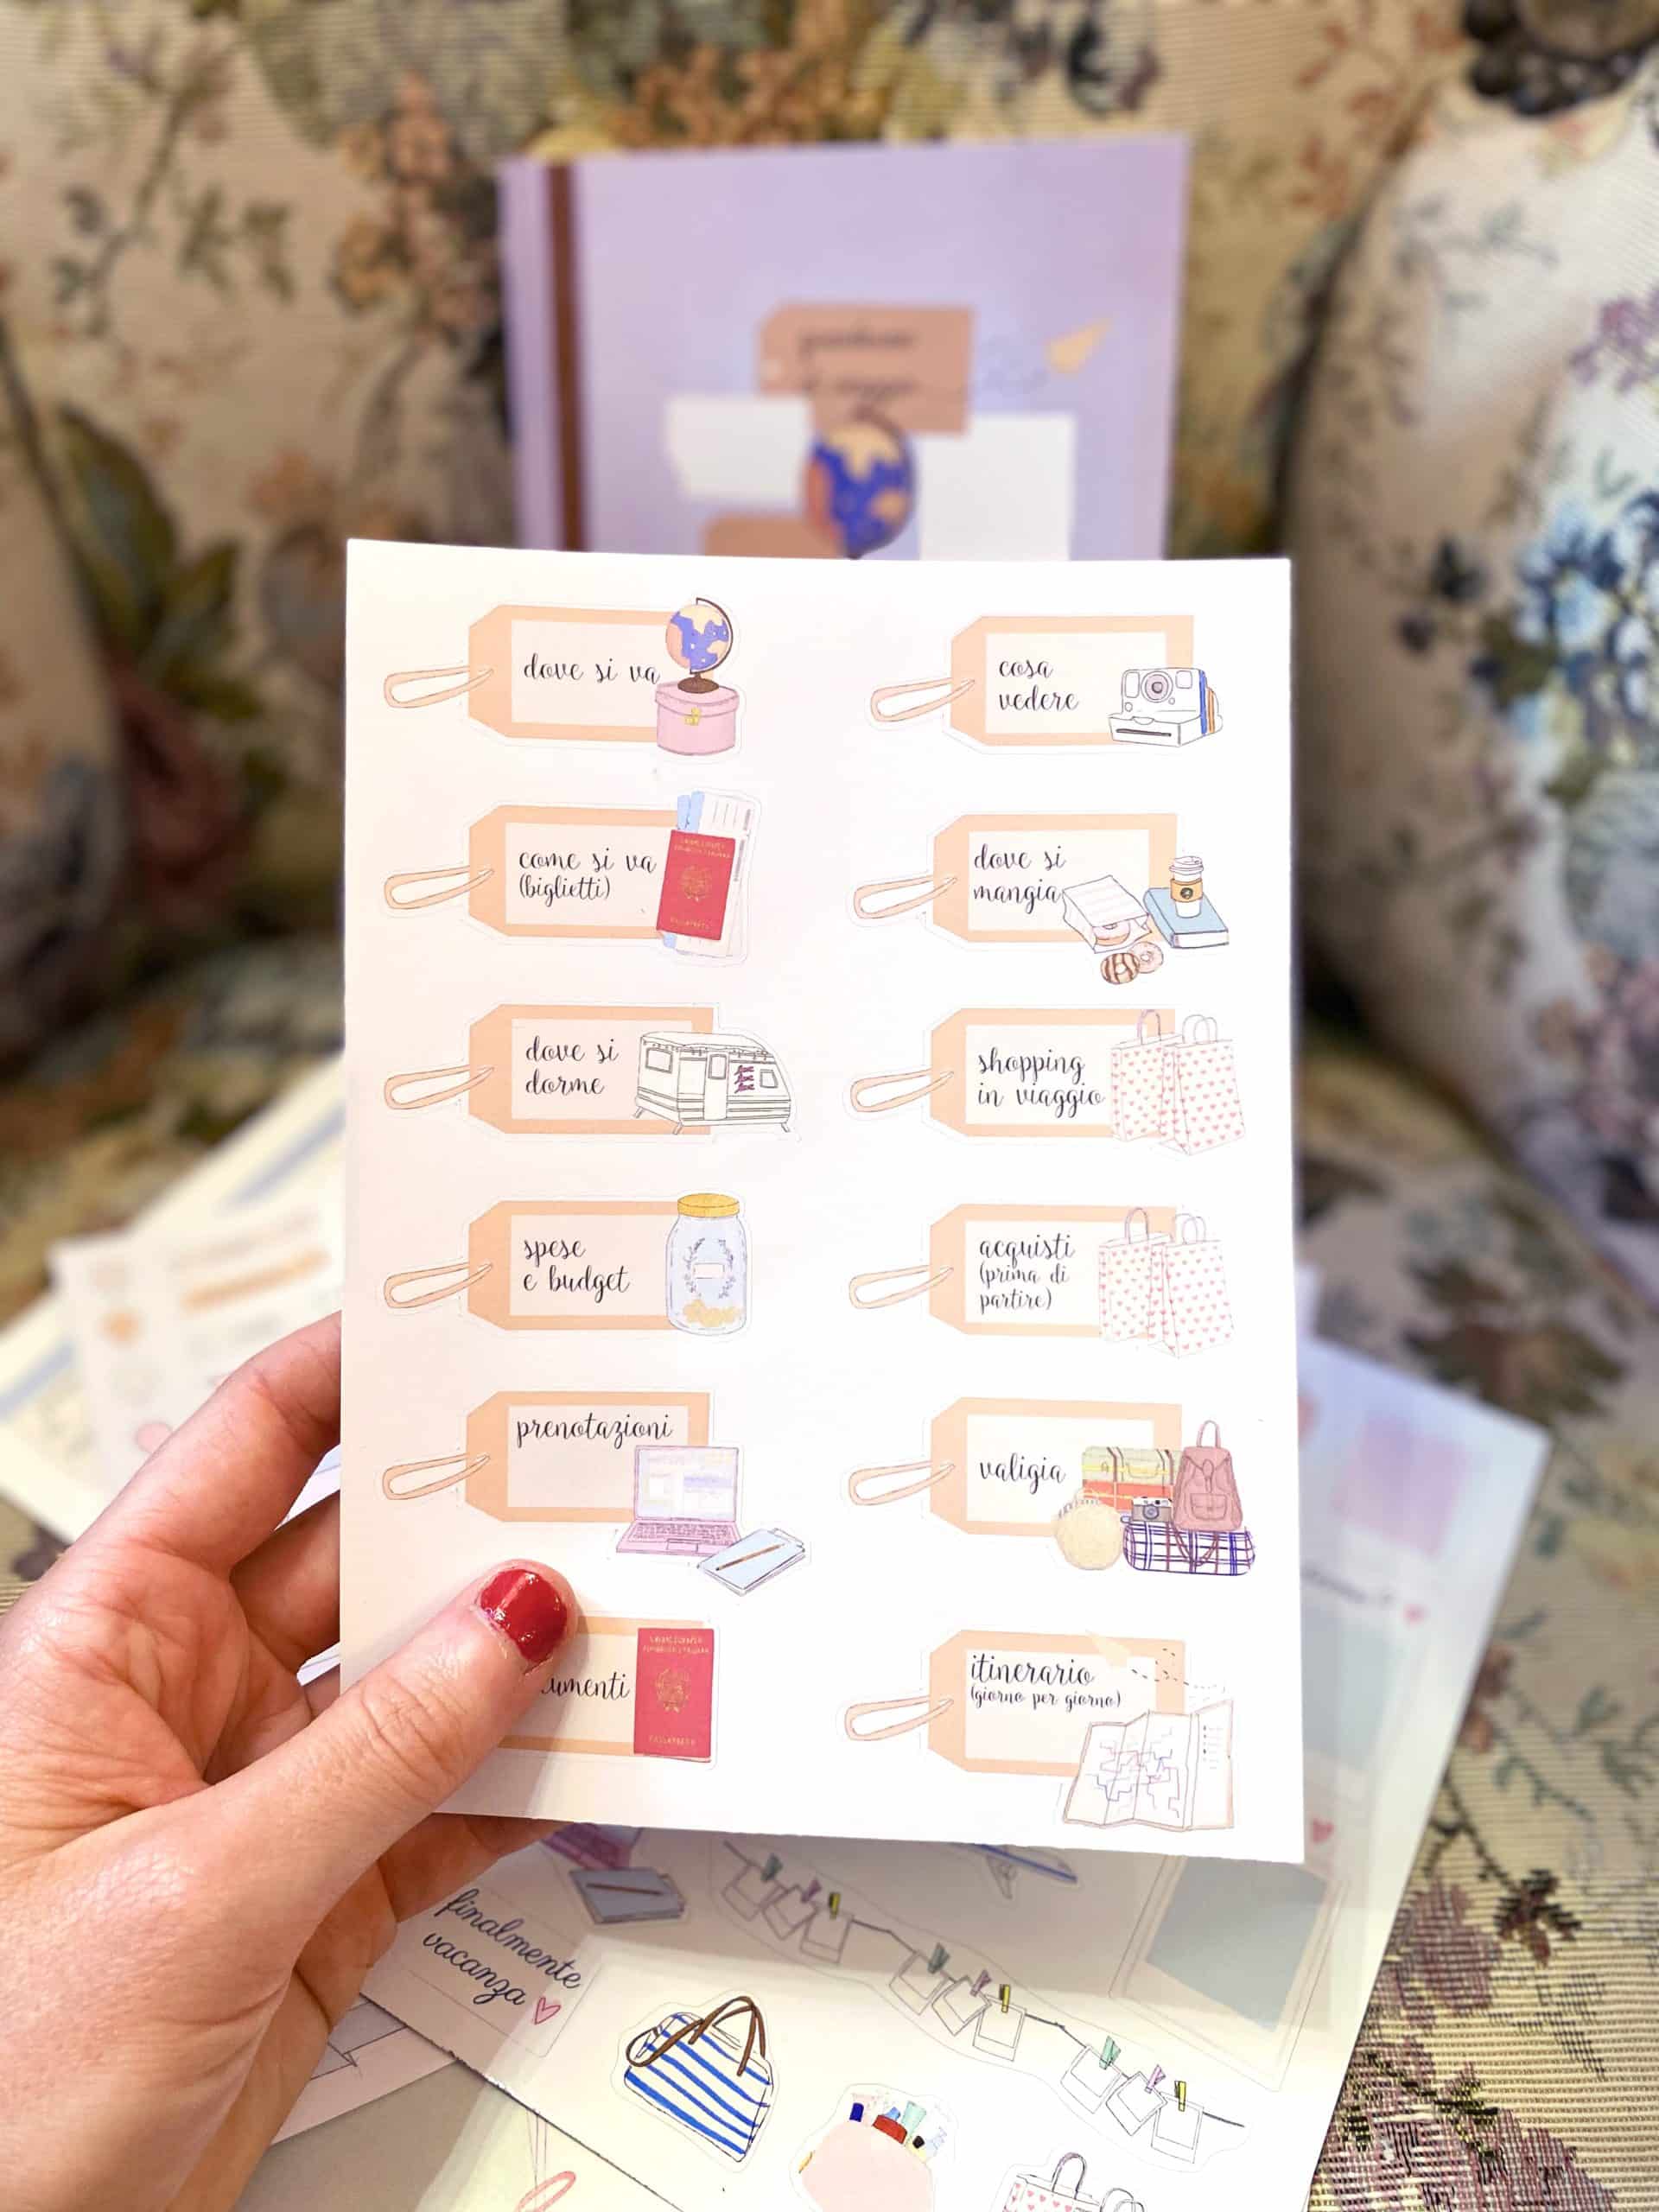 dove si va
come si va
(biglietti)
dove si
dorme
spese
e budget
prenotazioni
cosa
vedere
dove si
mangia
shopping
in viaggio
acquisti
(prima di
partire)
valigia
itinerario
(giorno per giorno)
finalmente
vacanza